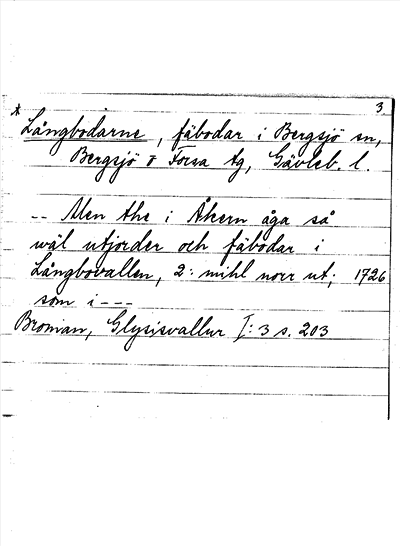 3
* Långbodarne, fäbodar i Bergsjö sn,
Bergsjö o Forsa tg, Gävleb. l.
-- Men the i Åkern äga så
wäl utjorder och fäbodar i
Långbovallen, 2: mihl norr ut; 1726
som i ---
Broman, Glysisvallur I: 3 s. 203